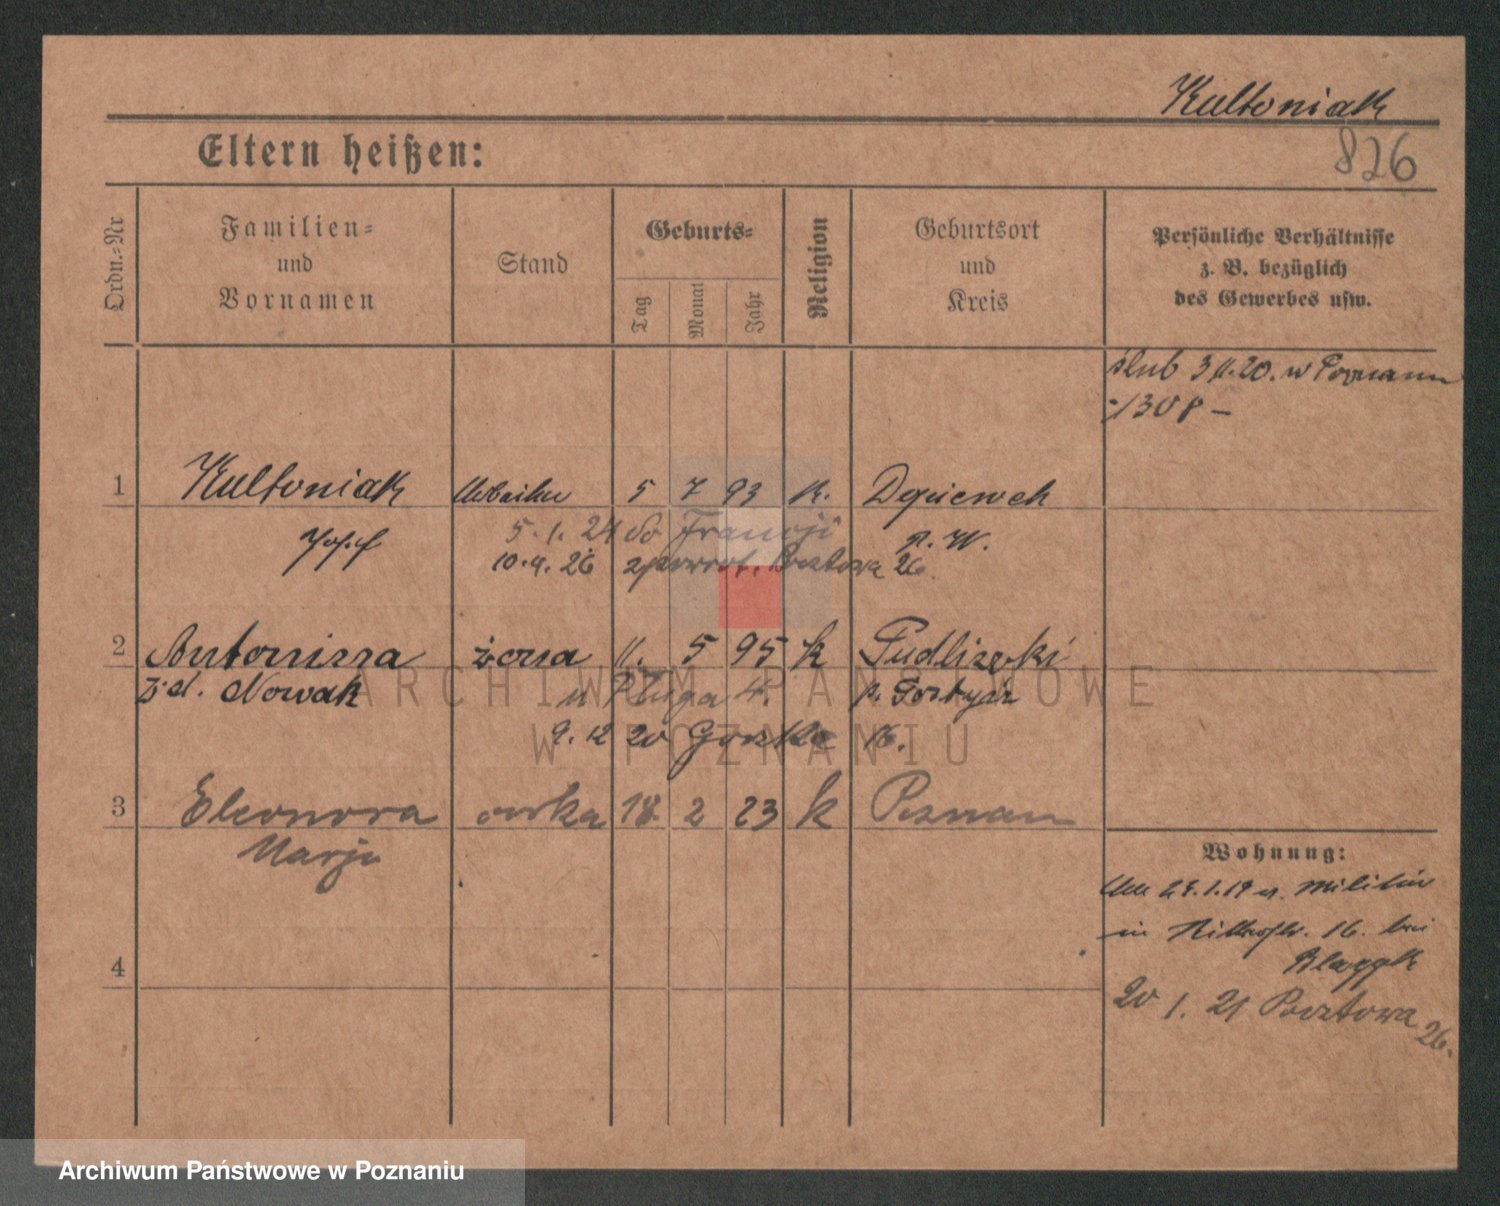 Kultoniak
826
Eltern heißen:
Ordn.-Nr
Familien-
und
Vornamen
Stand
Geburts-
Tag
Monat
Jahr
Religion
Geburtsort
und
Kreis
Persönliche Verhältnisse
z. B. bezüglich
des Gewerbes usw.
ślub 3.11.20. w Poznaniu
1308 –
1 Kultoniak 5 7 93 k.
Josef p. W.
5.1.24 do Francji
10.9.26 Pocztowa 26.
2 Antonina żona 11. 5 95 k Pudliszki
z d. Nowak p. Gostyń
9.12 20 16.
3 Eleonora córka 18 2 23 k Poznań
Marja
4
Wohnung:
16. bei
20 1. 21 Pocztowa 26.
ARCHIWUM PAŃSTWOWE
W POZNANIU
Archiwum Państwowe w Poznaniu